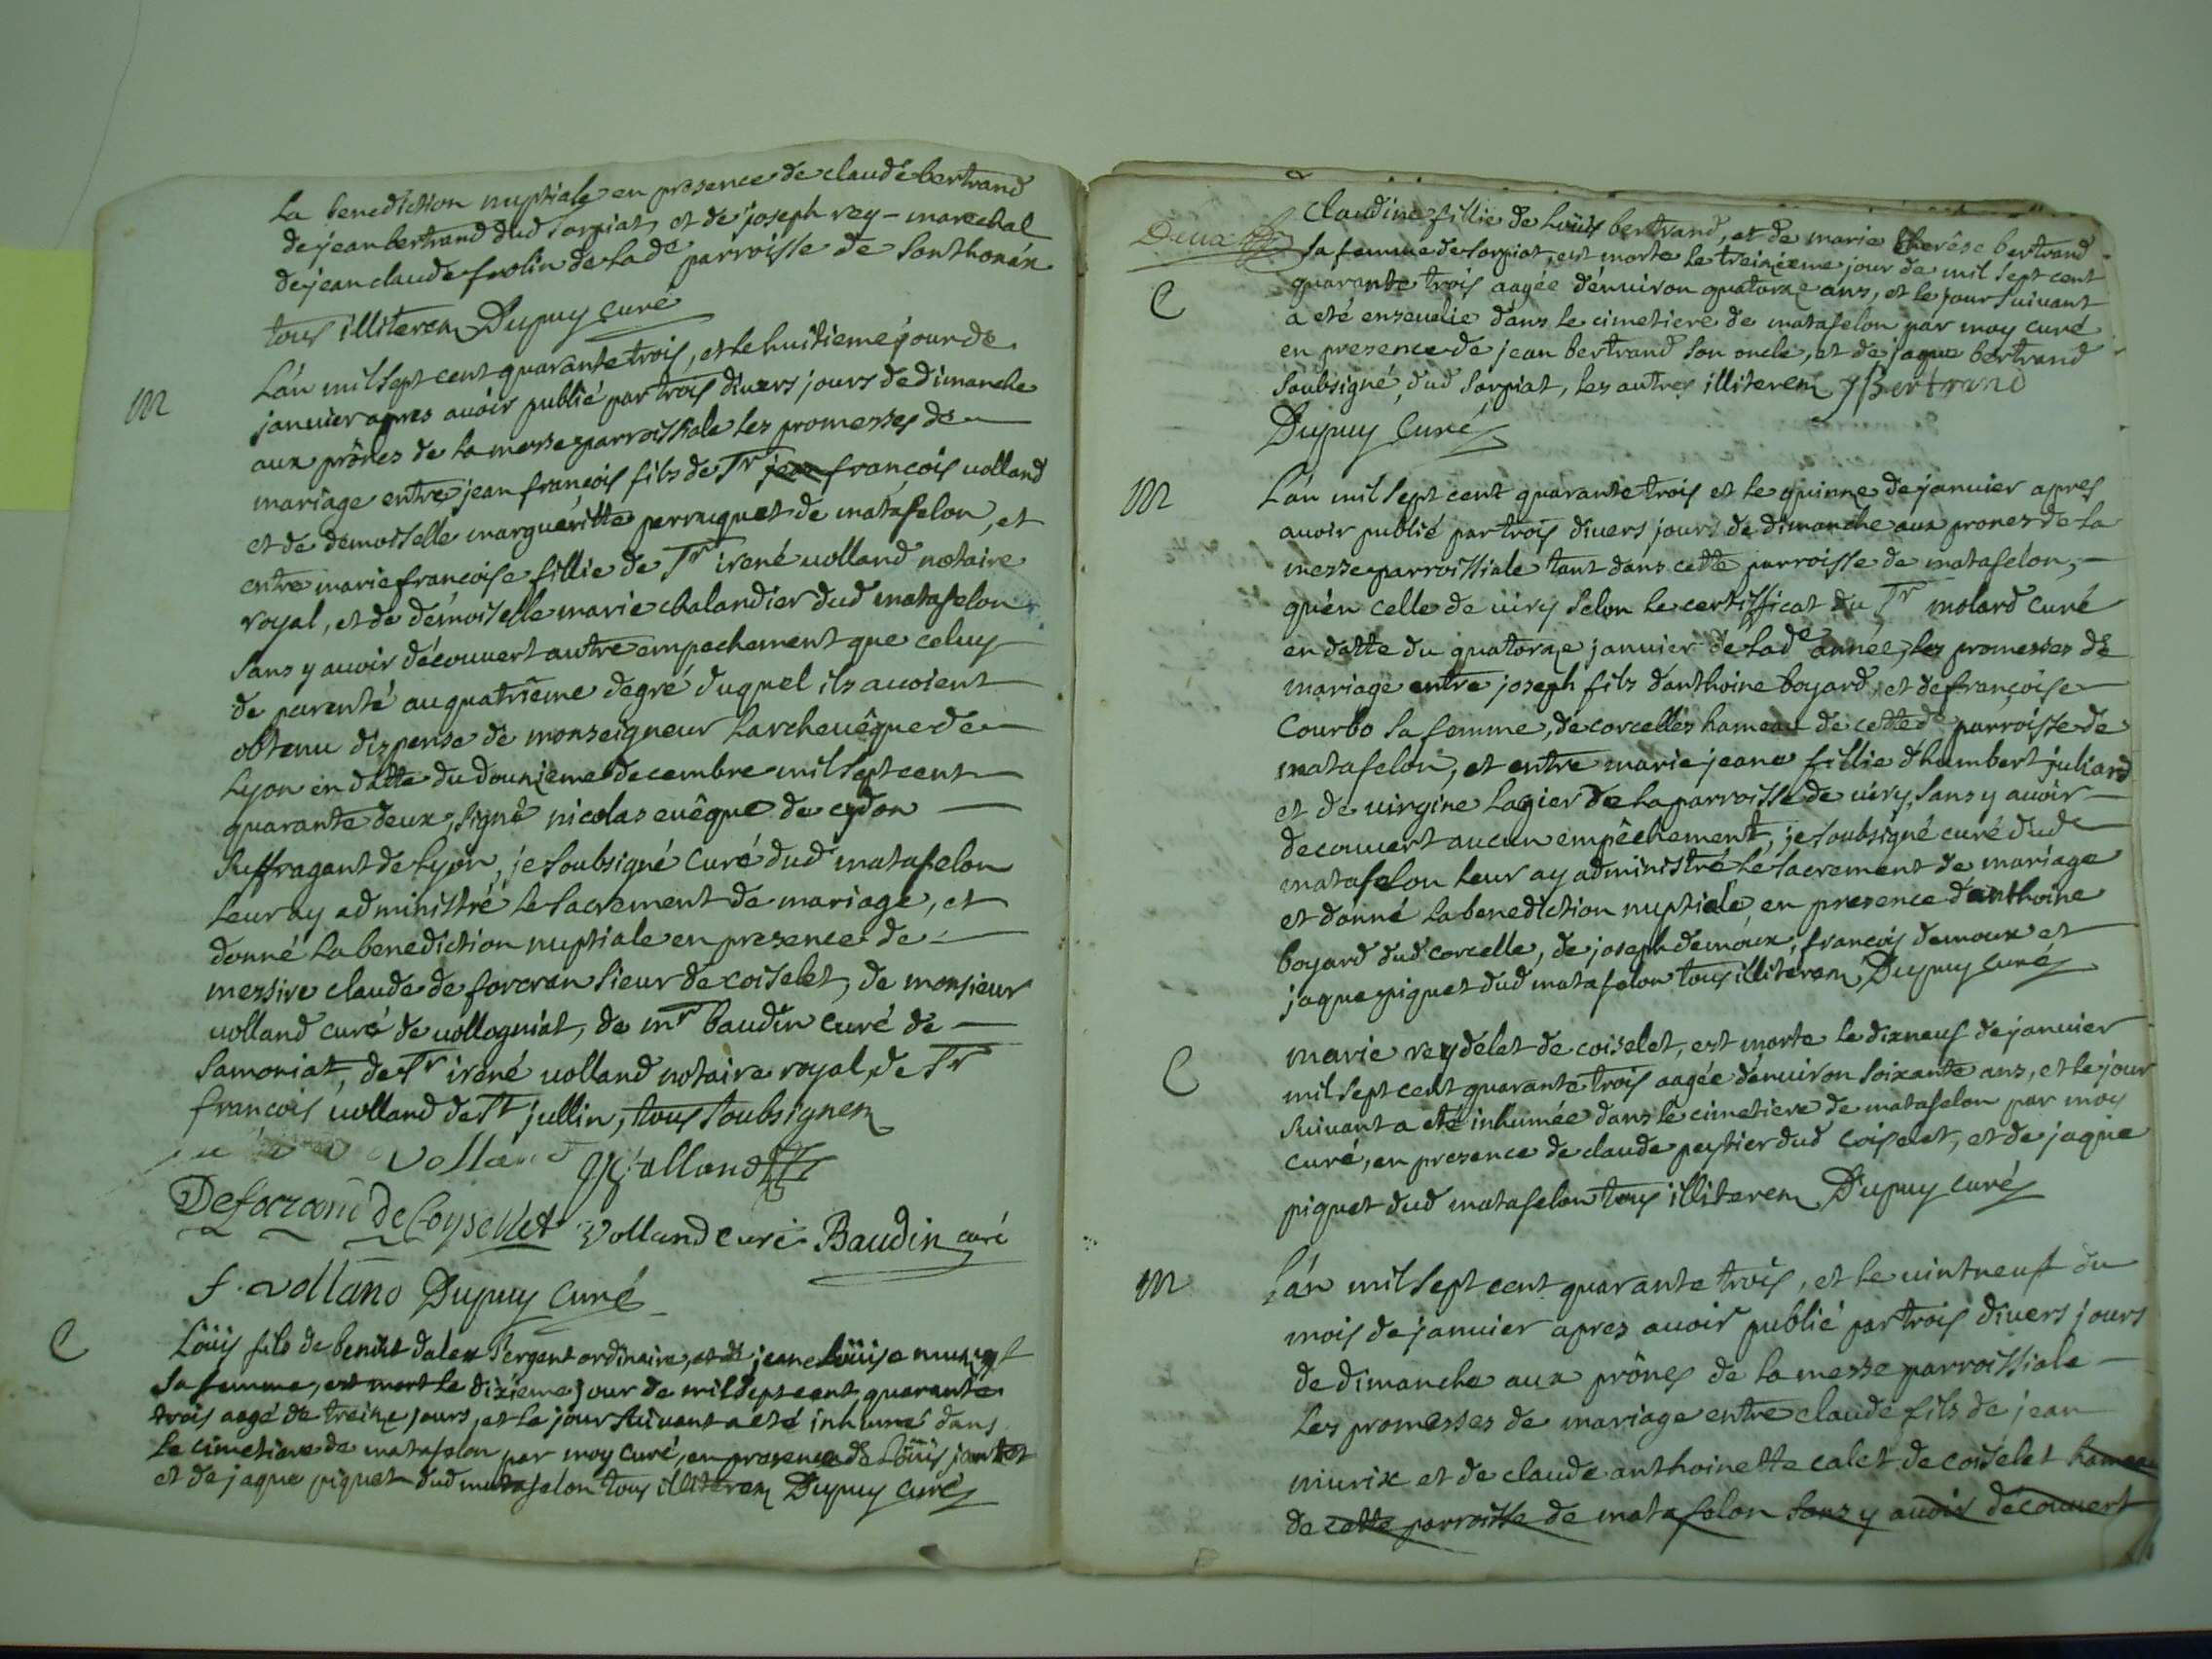 la benediction nuptiale en presence de claude bertrand
de jean bertrand dud sorpiat, et de joseph rey - marechal
de jean claude frolin de lade parroisse de Sonthonax
tous illiterez Dupuy curé
M
L'an mil sept cent quarante trois, et le huitieme jour de
janvier apres avoir publié par trois divers jours de dimanche
aux prônes de la messe parroissiale les promesses de
mariage entre jean françois fils de Sr jean françois volland
et de demoiselle marguéritte perruquet de matafelon, et
entre marie françoise fillie de Sr irené volland notaire
royal, et de demoiselle marie chalandier dud matafelon
sans y avoir découvert autre empechement que celuy
de parenté au quatrieme degré duquel ils avoient
obtenu dispense de monseigneur l'archevêque de
Lyon en datte du douzieme decembre mil sept cent
quarante deux, signé nicolas evêque de cydon
suffragant de Lyon, je soubsigné curé dud matafelon
leur ay administré le sacrement de mariage, et
donné la benediction nuptiale en presence de
messire claude de forcran sieur de coiselet, de monsieur
volland curé de vollogniat, de mr baudin curé de
Samoniat, de Sr irené volland notaire royal, de Sr
françois volland de St jullin, tous soubsignez
Volland Volland
De forcrand de Coyselet Volland curé Baudin curé
f. volland Dupuy curé
C
Loüis fils de benoit dalex sergent ordinaire, et de jeane Loüise
sa femme, est mort le dixieme jour de mil sept cent quarante
trois aagé de treize jours, et le jour suivant a eté inhumé dans
le cimetiere de matafelon par moy curé, en presence de Loüis jantet
et de jaque piquet dud matafelon tous illiterez Dupuy curé
Deux
C
Claudine fillie de Loüis bertrand, et de marie therêse bertrand
sa femme de sorpiat, est morte le treizieme jour de mil sept cent
quarante trois aagée d'environ quatorze ans, et le jour suivant
a eté ensevelie dans le cimetiere de matafelon par moy curé
en presence de jean bertrand son oncle, et de jaque bertrand
soubsigné, dud sorpiat, les autres illiterez J Bertrand
Dupuy Curé
M
L'an mil sept cent quarante trois et le quinze de janvier apres
avoir publié par trois divers jours de dimanche aux prones de la
messe parroissiale tant dans cette parroisse de matafelon,
qu'en celle de viry selon le certifficat du Sr molard curé
en datte du quatorze janvier de lade année, les promesses de
mariage entre joseph fils d'anthoine boyard, et de françoise
Courbo sa femme, de corcelles hameau de cettede parroisse de
matafelon, et entre marie jeane fillie d'humbert juliard
et de virgine lagier de la parroisse de viry, sans y avoir
decouvert aucun empêchement, je soubsigné curé dud
matafelon leur ay administré le sacrement de mariage
et donné la benediction nuptiale, en presence d'anthoine
boyard dud corcelle, de joseph demoux, françois demoux et
jaque piquet dud matafelon tous illiterez Dupuy curé
C
marie reydelet de coiselet, est morte le dixneuf de janvier
mil sept cent quarante trois aagée d'environ soixante ans, et le jour
suivant a eté inhumée dans le cimetiere de matafelon par moy
curé, en presence de claude peytier dud coiselet, et de jaque
piquet dud matafelon tous illiterez Dupuy curé
M
L'an mil sept cent quarante trois, et le vintneuf du
mois de janvier apres avoir publié par trois divers jours
de dimanche aux prônes de la messe parroissiale
les promesses de mariage entre claude fils de jean
nivrix et de claude anthoinette calet de coiselet hameau
de cette parroisse de matafelon sans y avoir découvert